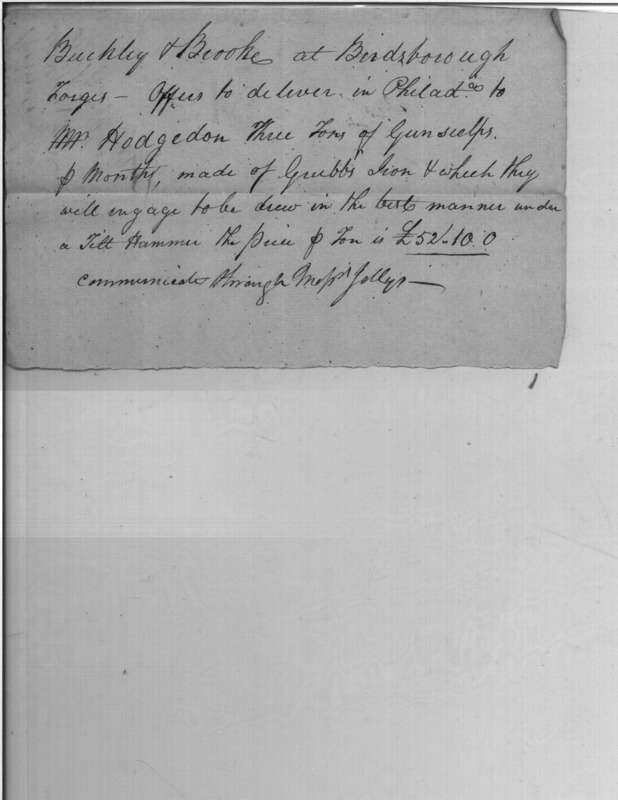 Buckley & Brooke at Birdsborough
Forges - Offers to deliver in Philad.ᵃ to
Mr. Hodgedon Three Tons of Gunscelps.
⅌ Month, made of Grubb's Iron & which they
will engage to be drew in the best manner under
a Tilt Hammer the price ⅌ Ton is £52.10.0
communicate through Messrs Jollys -